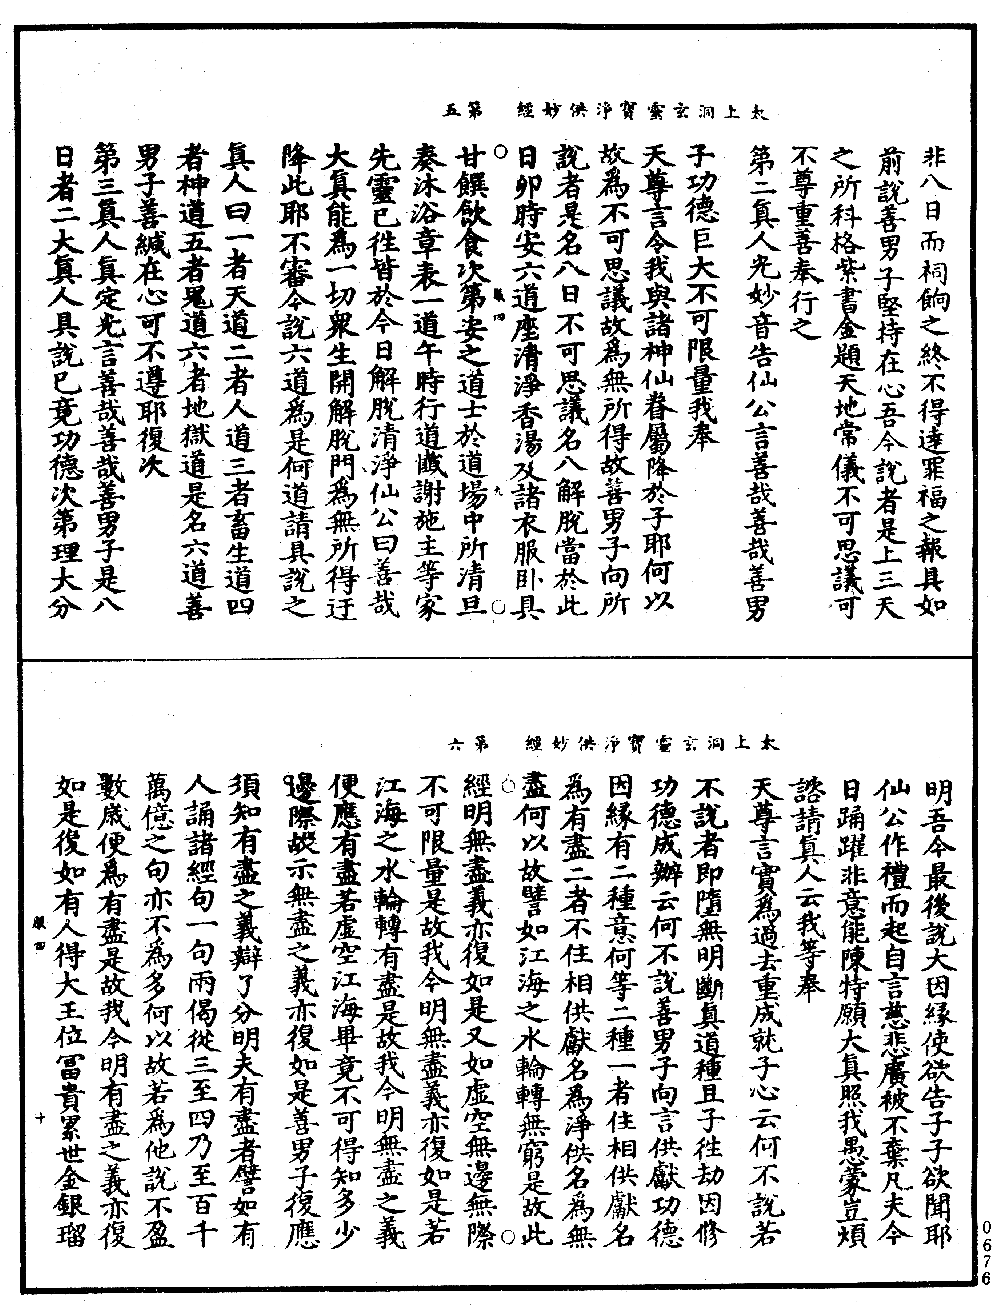 太上洞玄靈寶淨供妙經　第五
非八日而祠餉之終不得達罪福之報具如
前說善男子堅持在心吾今說者是上三天
之所科格紫書金題天地常儀不可思議可
不尊重善奉行之
第二真人光妙音告仙公言善哉善哉善男
子功德巨大不可限量我奉
天尊言令我與諸神仙眷屬降於子耶何以
故為不可思議故為無所得故善男子向所
說者是名八日不可思議名八解脫當於此
日卯時安六道座清淨香湯及諸衣服臥具
甘饌飲食次第安之道士於道場中所清旦
奏沐浴章表一道午時行道懺謝施主等家
先靈已徃皆於今日解脫清淨仙公曰善哉
大真能為一切眾生開解脫門為無所得迂
降此耶不審今說六道為是何道請具說之
真人曰一者天道二者人道三者畜生道四
者神道五者鬼道六者地獄道是名六道善
男子善緘在心可不遵耶復次
第三真人真定光言善哉善哉善男子是八
日者二大真人具說已竟功德次第理大分
職四
九
太上洞玄靈寶淨供妙經　第六
明吾今最後說大因緣使欲告子子欲聞耶
仙公作禮而起自言慈悲廣被不棄凡夫今
日踊躍非意能陳特願大真照我愚蒙豈煩
諮請真人云我等奉
天尊言實為過去重成就子心云何不說若
不說者即墮無明斷真道種且子徃劫因修
功德成辦云何不說善男子向言供獻功德
因緣有二種意何等二種一者住相供獻名
為有盡二者不住相供獻名為淨供名為無
盡何以故譬如江海之水輪轉無窮是故此
經明無盡義亦復如是又如虛空無邊無際
不可限量是故我今明無盡義亦復如是若
江海之水輪轉有盡是故我今明無盡之義
便應有盡若虛空江海畢竟不可得知多少
邊際故示無盡之義亦復如是善男子復應
須知有盡之義辯了分明夫有盡者譬如有
人誦諸經句一句兩偈從三至四乃至百千
萬億之句亦不為多何以故若為他說不盈
數歲便為有盡是故我今明有盡之義亦復
如是復如有人得大王位冨貴累世金銀瑠
職四
十
0676